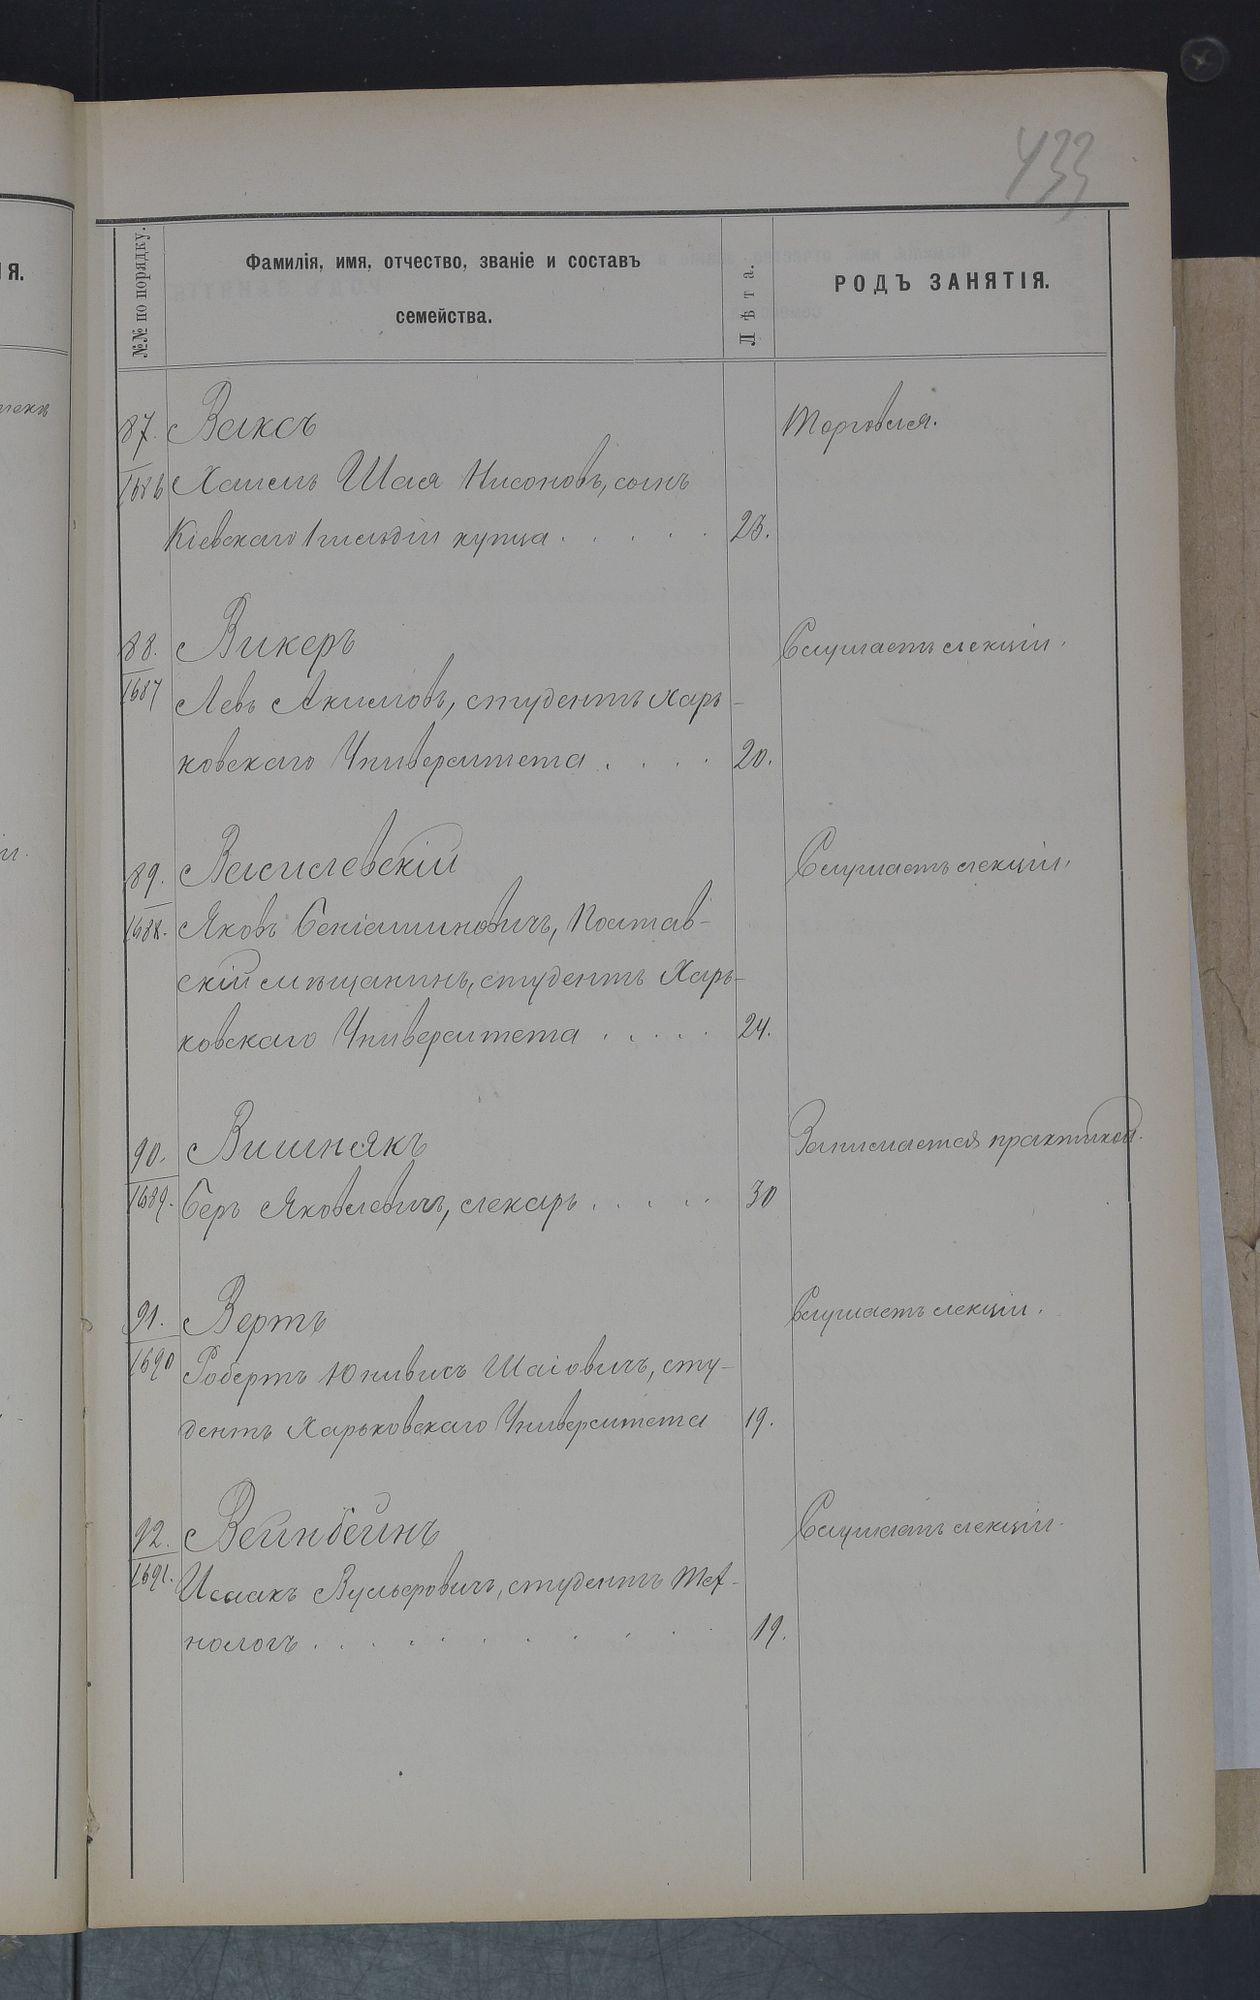 433
№№ по порядку.
Фамилія, имя, отчество, званіе и составъ
семейства.
Лѣта.
РОДЪ ЗАНЯТІЯ.
Я.
87.
1686
Ваксъ
Торговля.
Хаимъ Шая Нисоновъ, сынъ
Кіевскаго 1 гильдіи купца . . . . . 23.
88.
1687
Викеръ
Слушаетъ лекціи.
Левъ Акимовъ, студентъ Харь-
ковскаго Университета . . . . 20.
89.
1688.
Василевскій
Слушаетъ лекціи.
Яковъ Беніаминовичъ, Полтав-
скій мѣщанинъ, студентъ Харь-
ковскаго Университета . . . . . 24.
90.
1689.
Вишнякъ
Занимается практикой.
Беръ Яковлевичъ, лекарь . . . . . 30
91.
1690
Вертъ
Слушаетъ лекціи.
Робертъ Шаіовичъ, сту-
дентъ Харьковскаго Университета 19.
92.
1691.
Вейнбейнъ
Слушаетъ лекціи.
Исаакъ Вульфовичъ, студентъ Тех-
нологъ . . . . . . . . . . . 19.